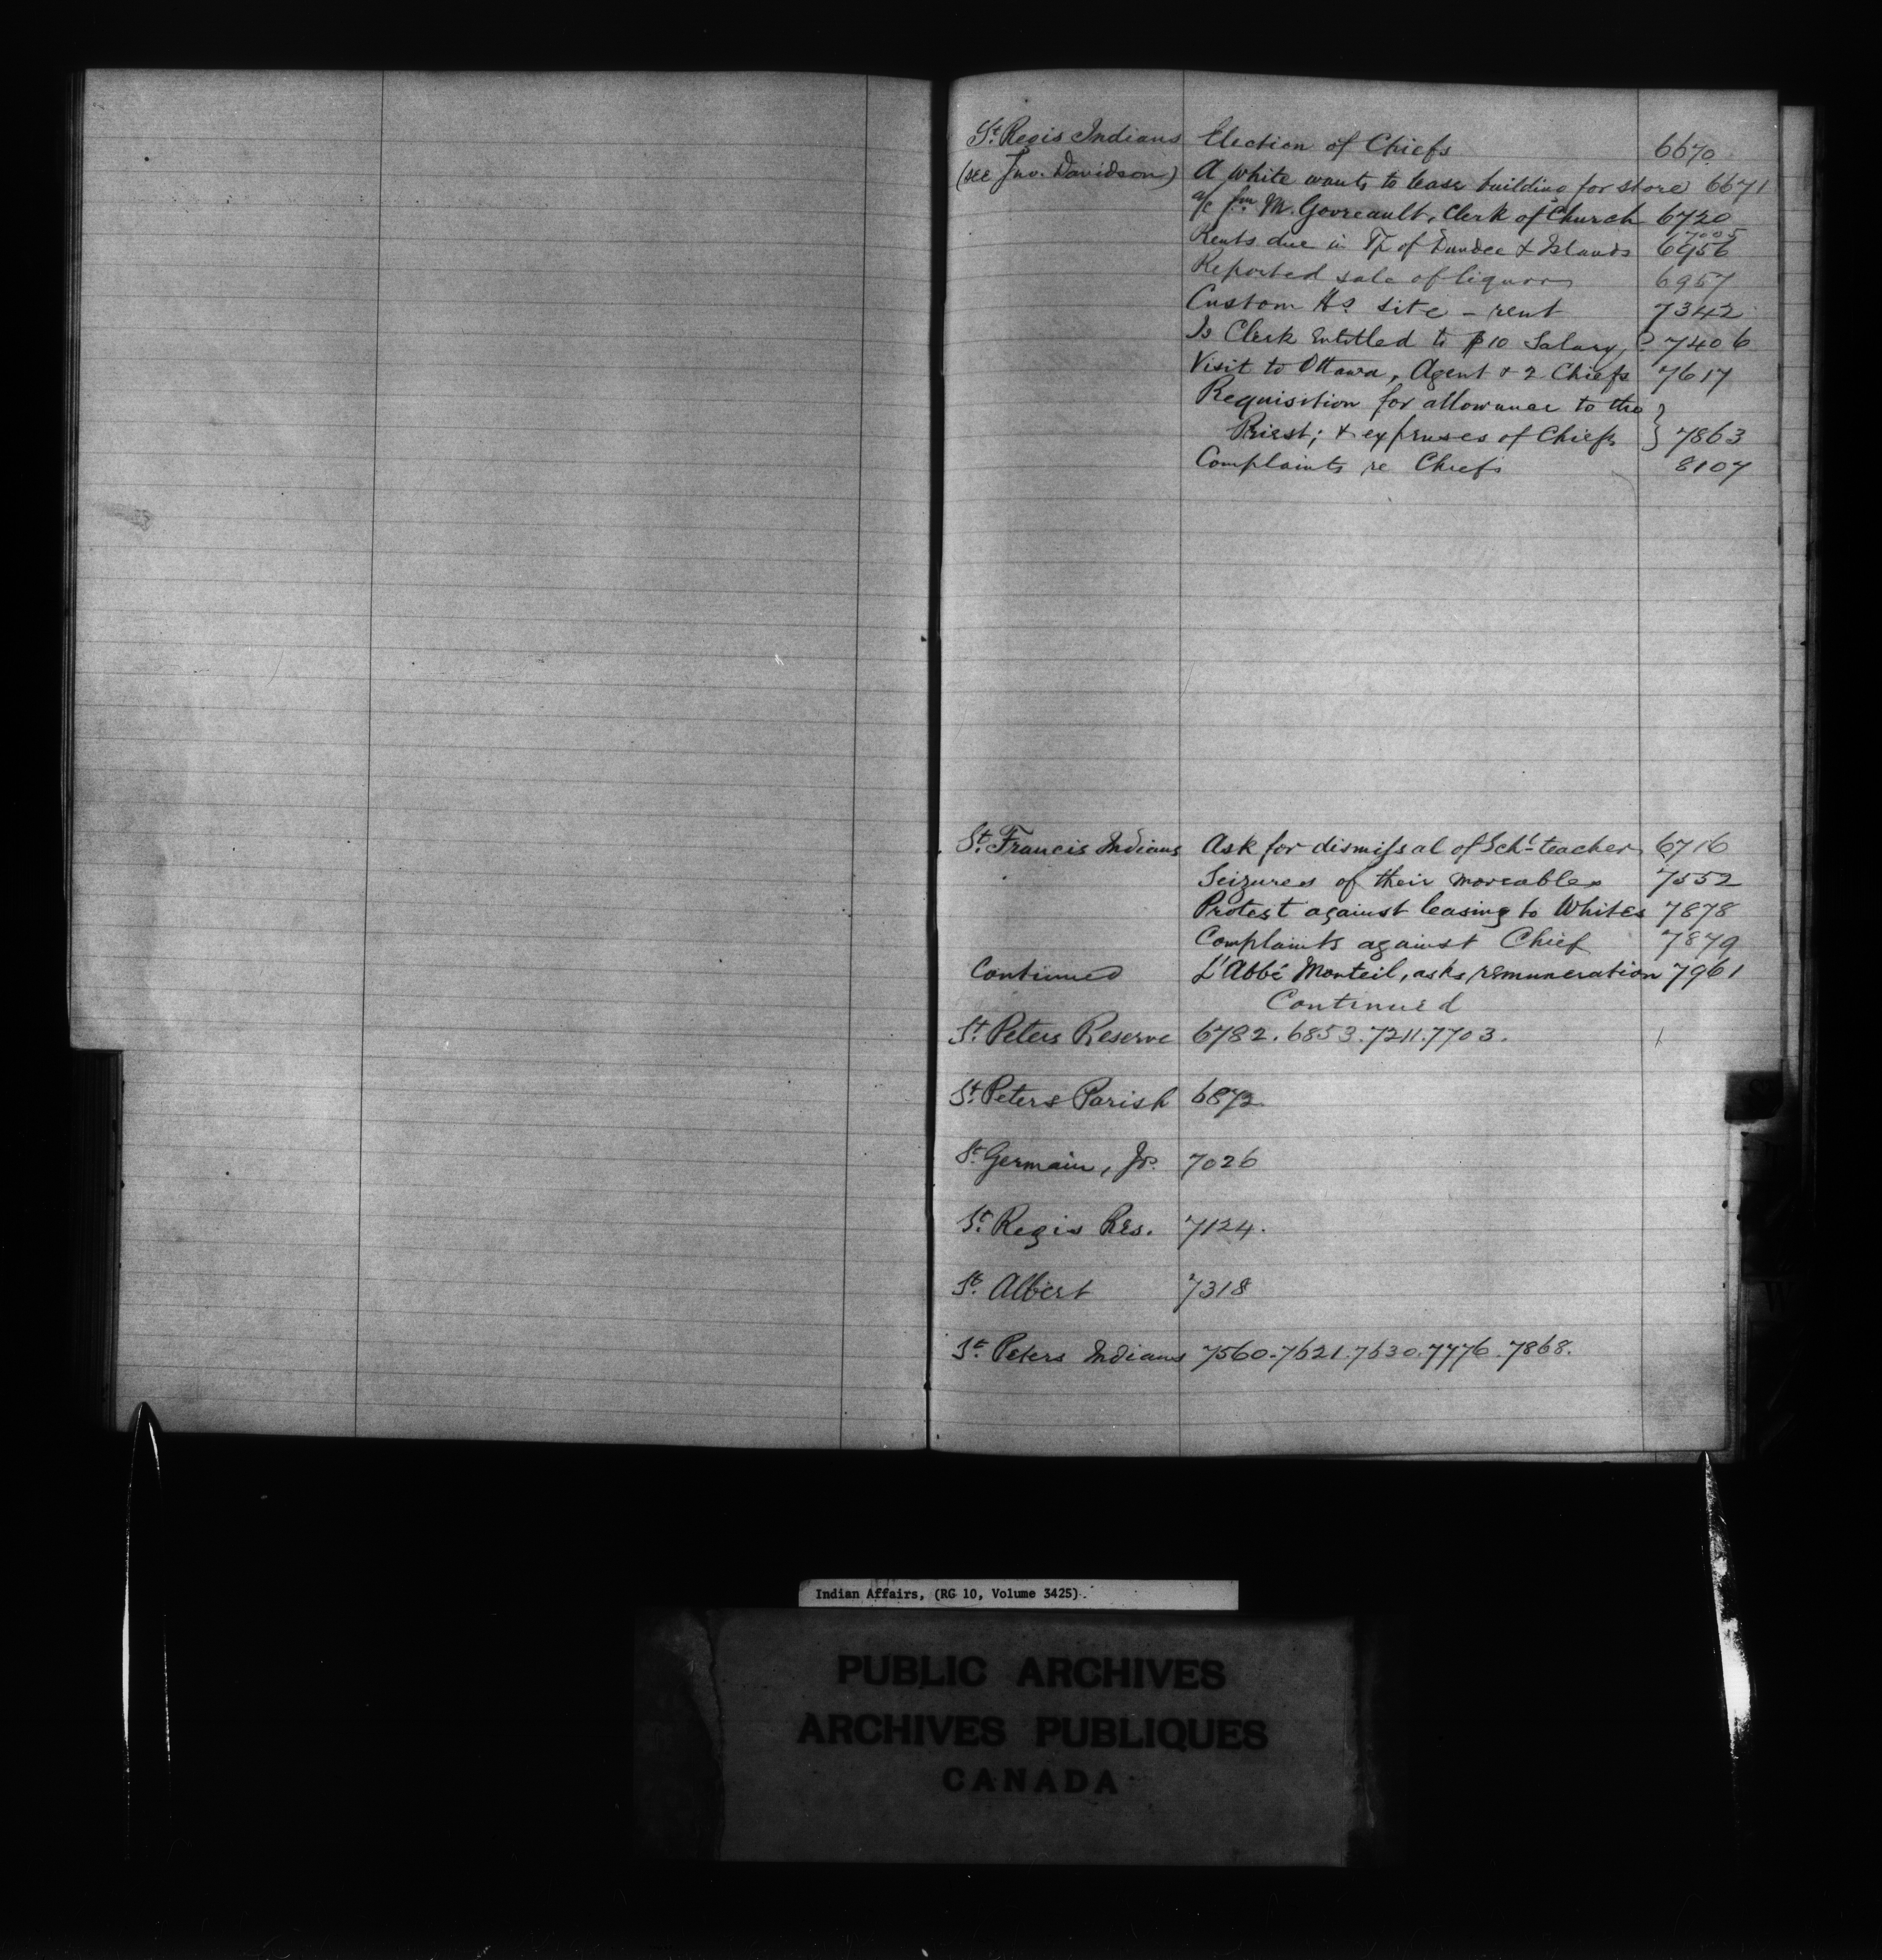 St. Regis Indians Election of Chiefs 6670
(see Jno. Davidson) A white wants to lease building for store 6671
a/c fm M. Govreault, Clerk of Church 6720
7005
Rents due in Tp of Dundee & Islands 6956
Reported sale of liquor 6957
Custom Ho. site - rent 7342
Is Clerk entitled to $10 Salary,? 7406
Visit to Ottawa, Agent & 2 Chiefs 7617
Requisition for allowance to the
Priest; & expenses of Chiefs } 7863
Complaints re Chiefs 8107
St. Francis Indians Ask for dismissal of Schl teacher 6716
Seizures of their moveables 7552
Protest against leasing to Whites 7878
Complaints against Chief 7879
Continued L'Abbé Monteil, asks remuneration 7961
Continued
St. Peters Reserve 6782. 6853. 7211. 7703.
St. Peters Parish 6872
St. Germain, Js. 7026
St. Regis Res. 7124.
St. Albert 7318
St. Peters Indians 7560. 7621. 7630. 7776. 7868.
Indian Affairs, (RG 10, Volume 3425).
PUBLIC ARCHIVES
ARCHIVES PUBLIQUES
CANADA